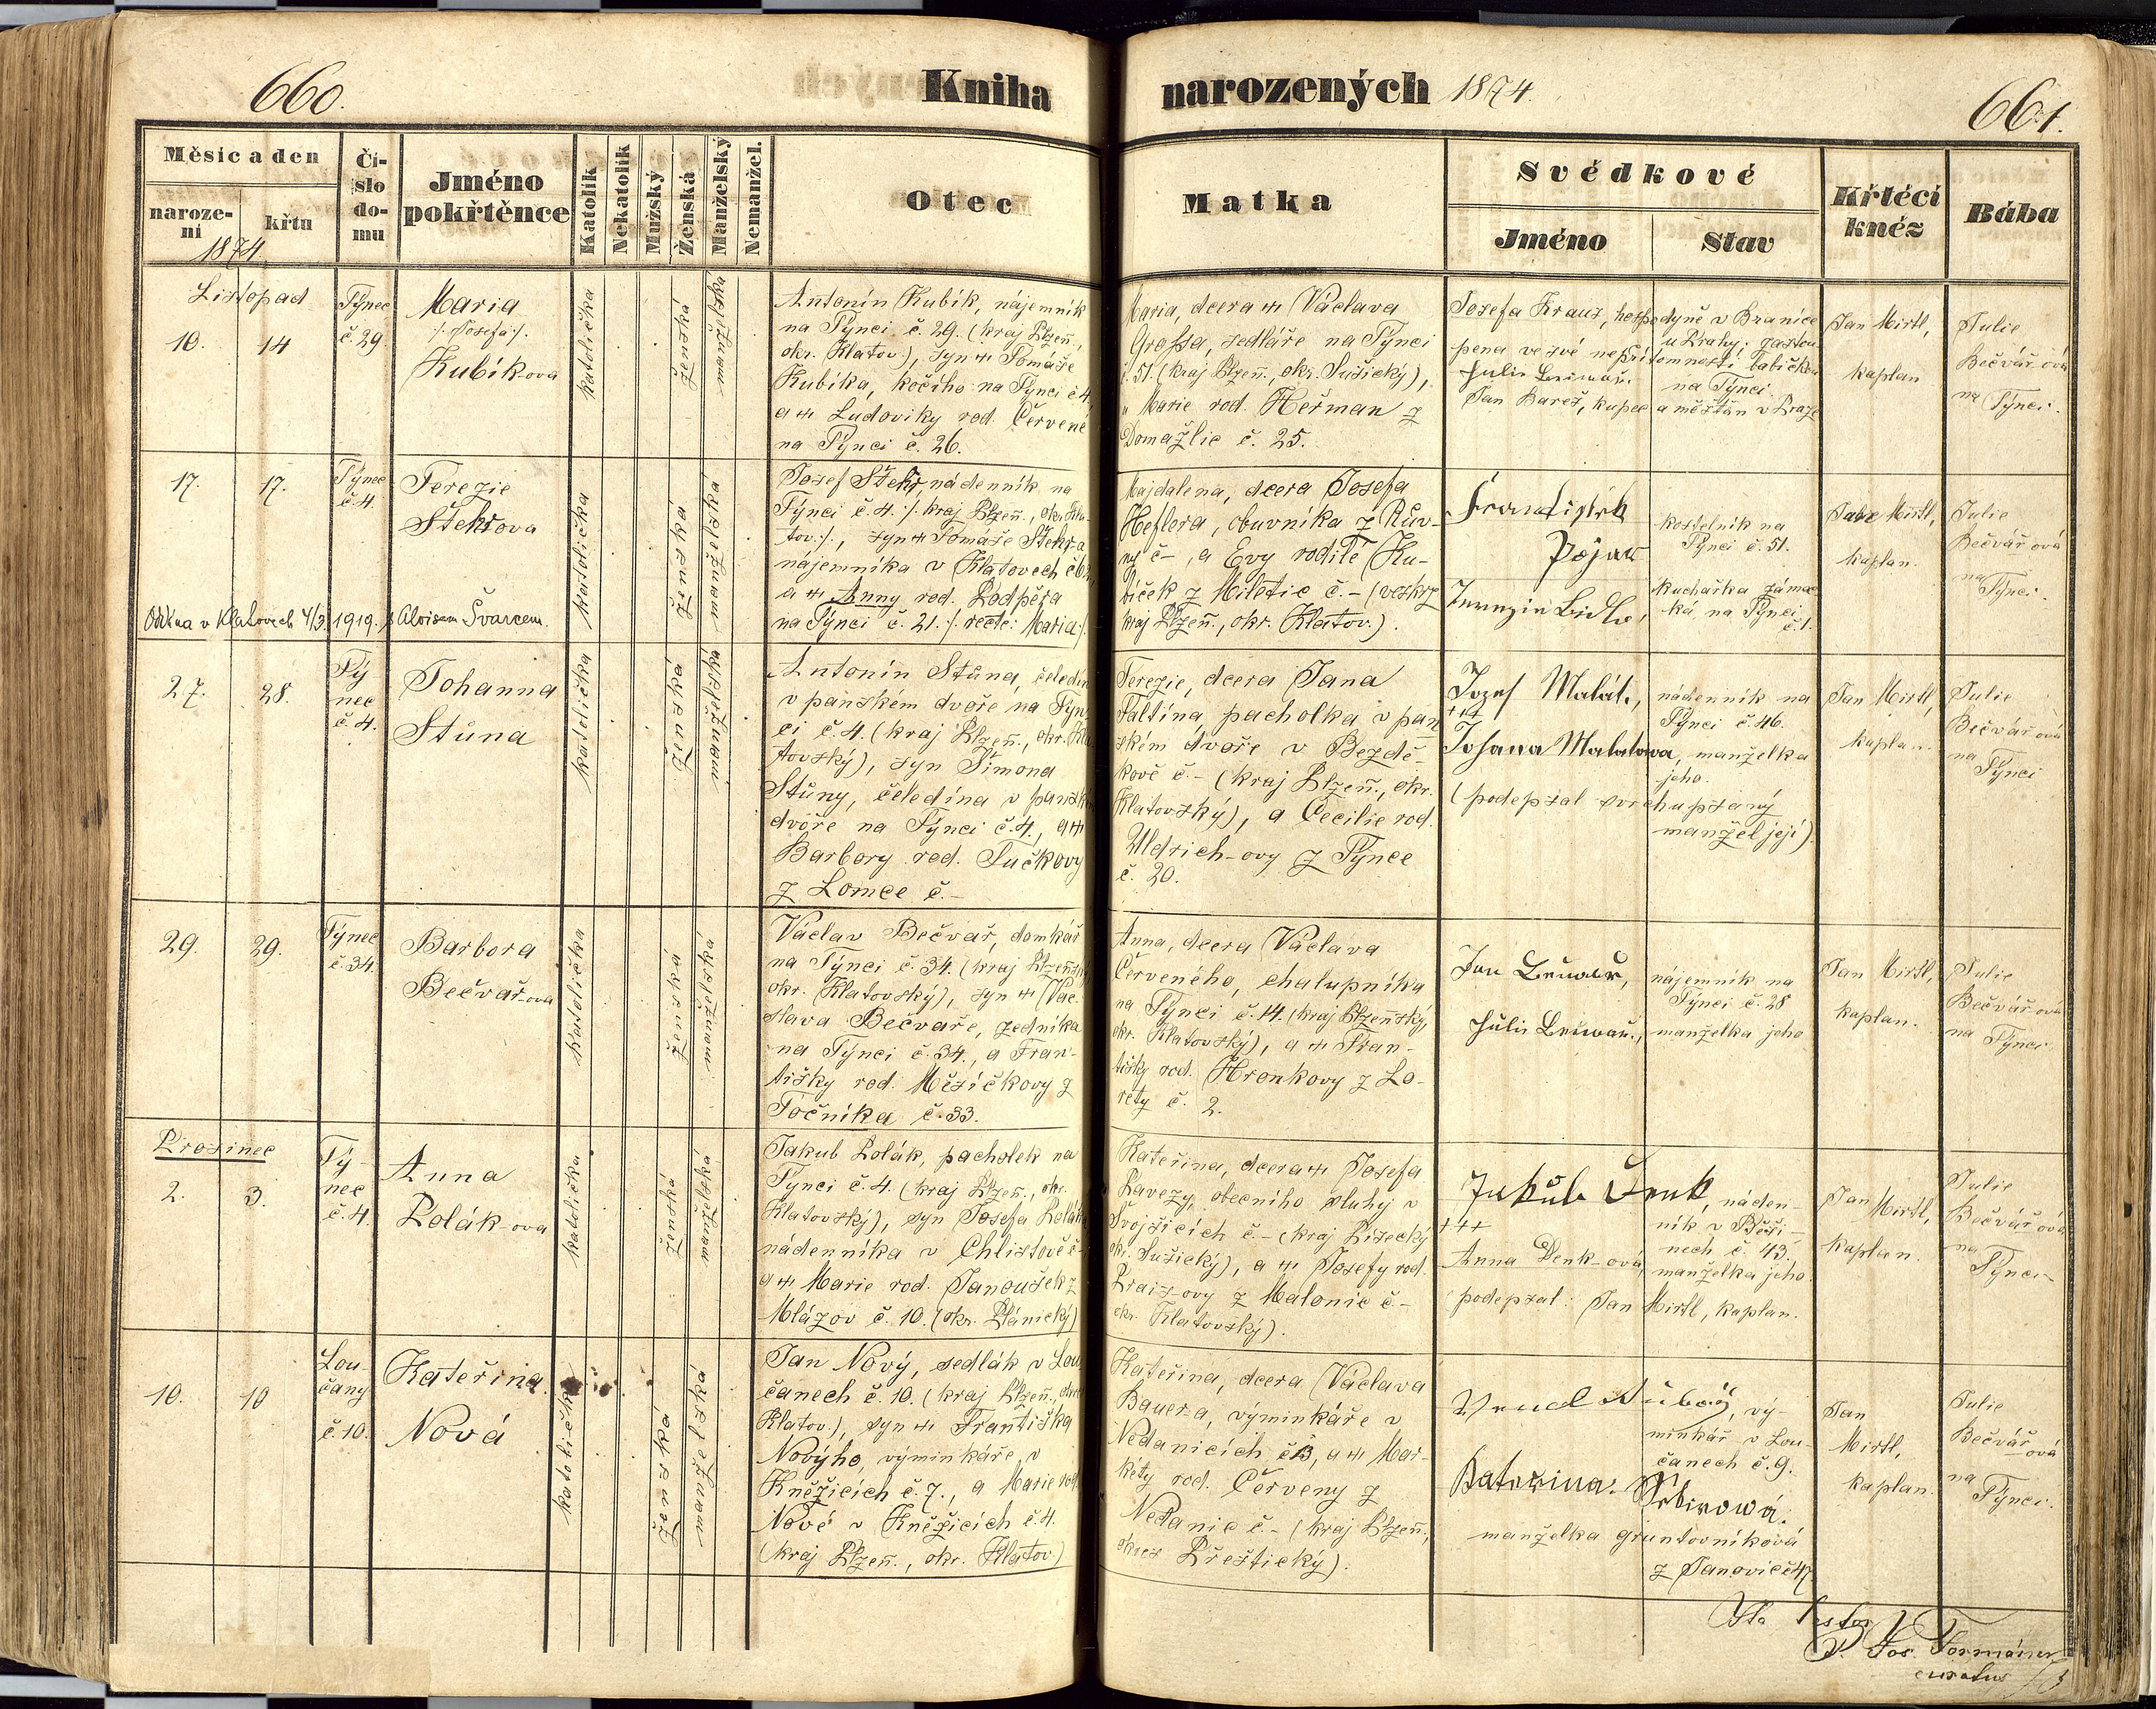 660.
Kniha
narozených 1874.
661.
Měsíc a den
naroze-
ní
křtu
1874
Čí-
slo
do-
mu
Jméno
pokřtěnce
Katolík
Nekatolík
Mužský
Ženská
Manželský
Nemanžel.
Otec
Matka
Svědkové
Jméno
Stav
Křtěcí
kněz
Bába
Listopad
10.
14
Týnec
č. 29
Maria
/: Josefa :/.
Kubík-ova
katolička
ženská
manželská
Antonín Kubík, nájemník
na Týnci č. 29. (kraj Plzeň.,
okr. Klatov.), syn + Tomáše
Kubíka, kočího na Týnci č 4.
a + Ludoviky rod. Červené
na Týnci č. 26.
Maria, dcera + Václava
Grossa, sedláře na Týnci
č. 51. (kraj Plzeň., okr. Sušický),
a Marie rod. Heřman z
Domažlic č. 25.
Josefa Kraus, hospodyně v Branice
u Prahy; zastou
pena ve své nepřítomnosti babičkou
na Týnci.
Jan Bareš, kupec a měštan v Praze
Jan Mirtl,
kaplan
Julie
Bečvář-ová
na Týnci.
17.
17.
Týnec
č. 4.
Terezie
Štekrova
katolička
ženská
manželská
Josef Štekr, nádenník na
Týnci č. 4. /: kraj Plzeň., okr. Kla-
tov :/., syn + Tomáše Štekr-a
nájemníka v Klatovech
a + Anny rod. Podpěra
na Týnci č. 21. /: recte: Maria :/.
Majdalena, dcera Josefa
Heflera, obuvníka z Rův-
ny č -, a Evy rodilé Ku-
bíček z Miletic č. - (veskrz
kraj Plzeň., okr. Klatov.).
František
Pojar
kostelník na
Týnci č. 51.
kuchařka záme-
ká na Týnci
č. 1.
Jan Mirtl,
kaplan.
Julie
Bečvář ová
na Týnci.
Odd na v Klatovech 4/3. 1919. s Aloisem Švarcem.
27.
28.
Tý
nec
č. 4.
Johanna
Stůna
katolička
ženská
manželská
Antonín Stůna, čeledín
v panském dvoře na Týn
ci č. 4. (kraj Plzeň., okr. Kla
tovský), syn Šimona
Stůny, čeledína v panském
dvoře na Týnci č. 4., a +
Barbory rod. Tučkovy
z Lomce č.-
Terezie, dcera Jana
Faltína, pacholka v pan
ském dvoře v Bezdě-
kově č.- (kraj Plzeň., okr.
Klatovský), a Cecilie rod.
Uldrich-ovy z Týnce
č. 20.
Jozef Malát,
nádenník na
Týnci č. 46.
+++
Johana Malatowa, manželka
jeho.
(podepsal svrchupsaný
manžel její).
Jan Mirtl,
kaplan.
Julie
Bečvář-ová
na
Týnci
29.
29.
Týnec
č. 34.
Barbora
Bečvař-ova
katolička
ženská
manželská
Václav Bečvař, domkář
na Týnci č. 34. (kraj Plzeňský
okr. Klatovský), syn + Vác-
slava Bečvaře, zedníka
na Týnci č. 34., a Fran-
tišky rod. Měsíčkovy z
Točníka č. 33.
Anna, dcera Václava
Červeného, chalupníka
na Týnci č. 14. (kraj Plzeňský,
okr. Klatovský), a + Fran-
tišky rod. Hronkovy z Lo-
rety č. 2.
nájemník na
Týnci č. 28
manželka jeho
Jan Mirtl,
kaplan.
Julie
Bečvář-ová
na Týnci
Prosinec
2.
3.
Tý-
nec
č. 4.
Anna
Polák-ova
katolička
ženská
manželská
Jakub Polák, pacholek na
Týnci č. 4. (kraj Plzeň., okr.
Klatovský), syn Josefa Poláka
nádenníka v Chlistově č-
a + Marie rod. Janoušek z
Mlázov č. 10. (okr. Plánický)
Kateřina, dcera + Josefa
Pavezy, obecního sluhy v
Svojšicích č.- (kraj Písecký
okr. Sušický), a + Josefy rod.
Prais-ovy z Malonic č.-
okr. Klatovský).
Jakub Denk, náden-
ník v Běši-
nech č. 43.
+++
Anna Denk-ová, manželka jeho.
podepsal: Jan Mirtl, kaplan.
Jan Mirtl,
kaplan.
Julie
Bečvář ová
na
Týnci
10.
10
Lou-
čany
č. 10.
Kateřina
Nová
katolička
ženská
manželská
Jan Nový, sedlák v Lou
čanech č. 10. (kraj Plzeň., okres
Klatov.), syn + Františka
Nového, výminkáře v
Kněžicích č. 7., a Marie rod.
Nové v Kněžicích č. 4.
(kraj Plzeň., okr. Klatov)
Kateřina, dcera Václava
Bauer-a, výminkáře v
Nedanicích č 3, a + Mar-
kéty rod. Červeny z
Nedanic č.- (kraj Plzeň.,
okres Přeštický).
vý-
minkář v Lou-
čanech č. 9.
Kateřina
manželka gruntovníková
z Janovic č 47.
Jan
Mirtl,
kaplan.
Julie
Bečvář-ová
na
Týnci.
P. Jos.
curatus